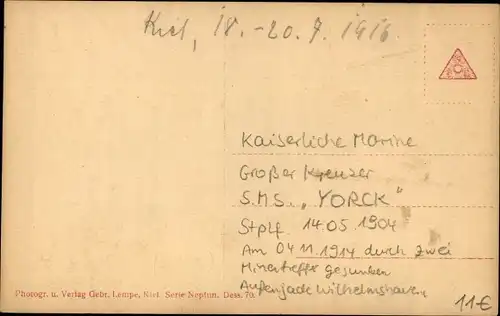 Kiel, 18.-20.7.1916
Kaiserliche Marine
Großer Kreuzer
S.M.S. „YORCK"
Stplf 14.05.1904
Am 04.11.1914 durch zwei
Minentreffer gesunken
Außenjade Wilhelmshaven
Photogr. u. Verlag Gebr. Lempe, Kiel. Serie Neptun. Dess. 79.
11€